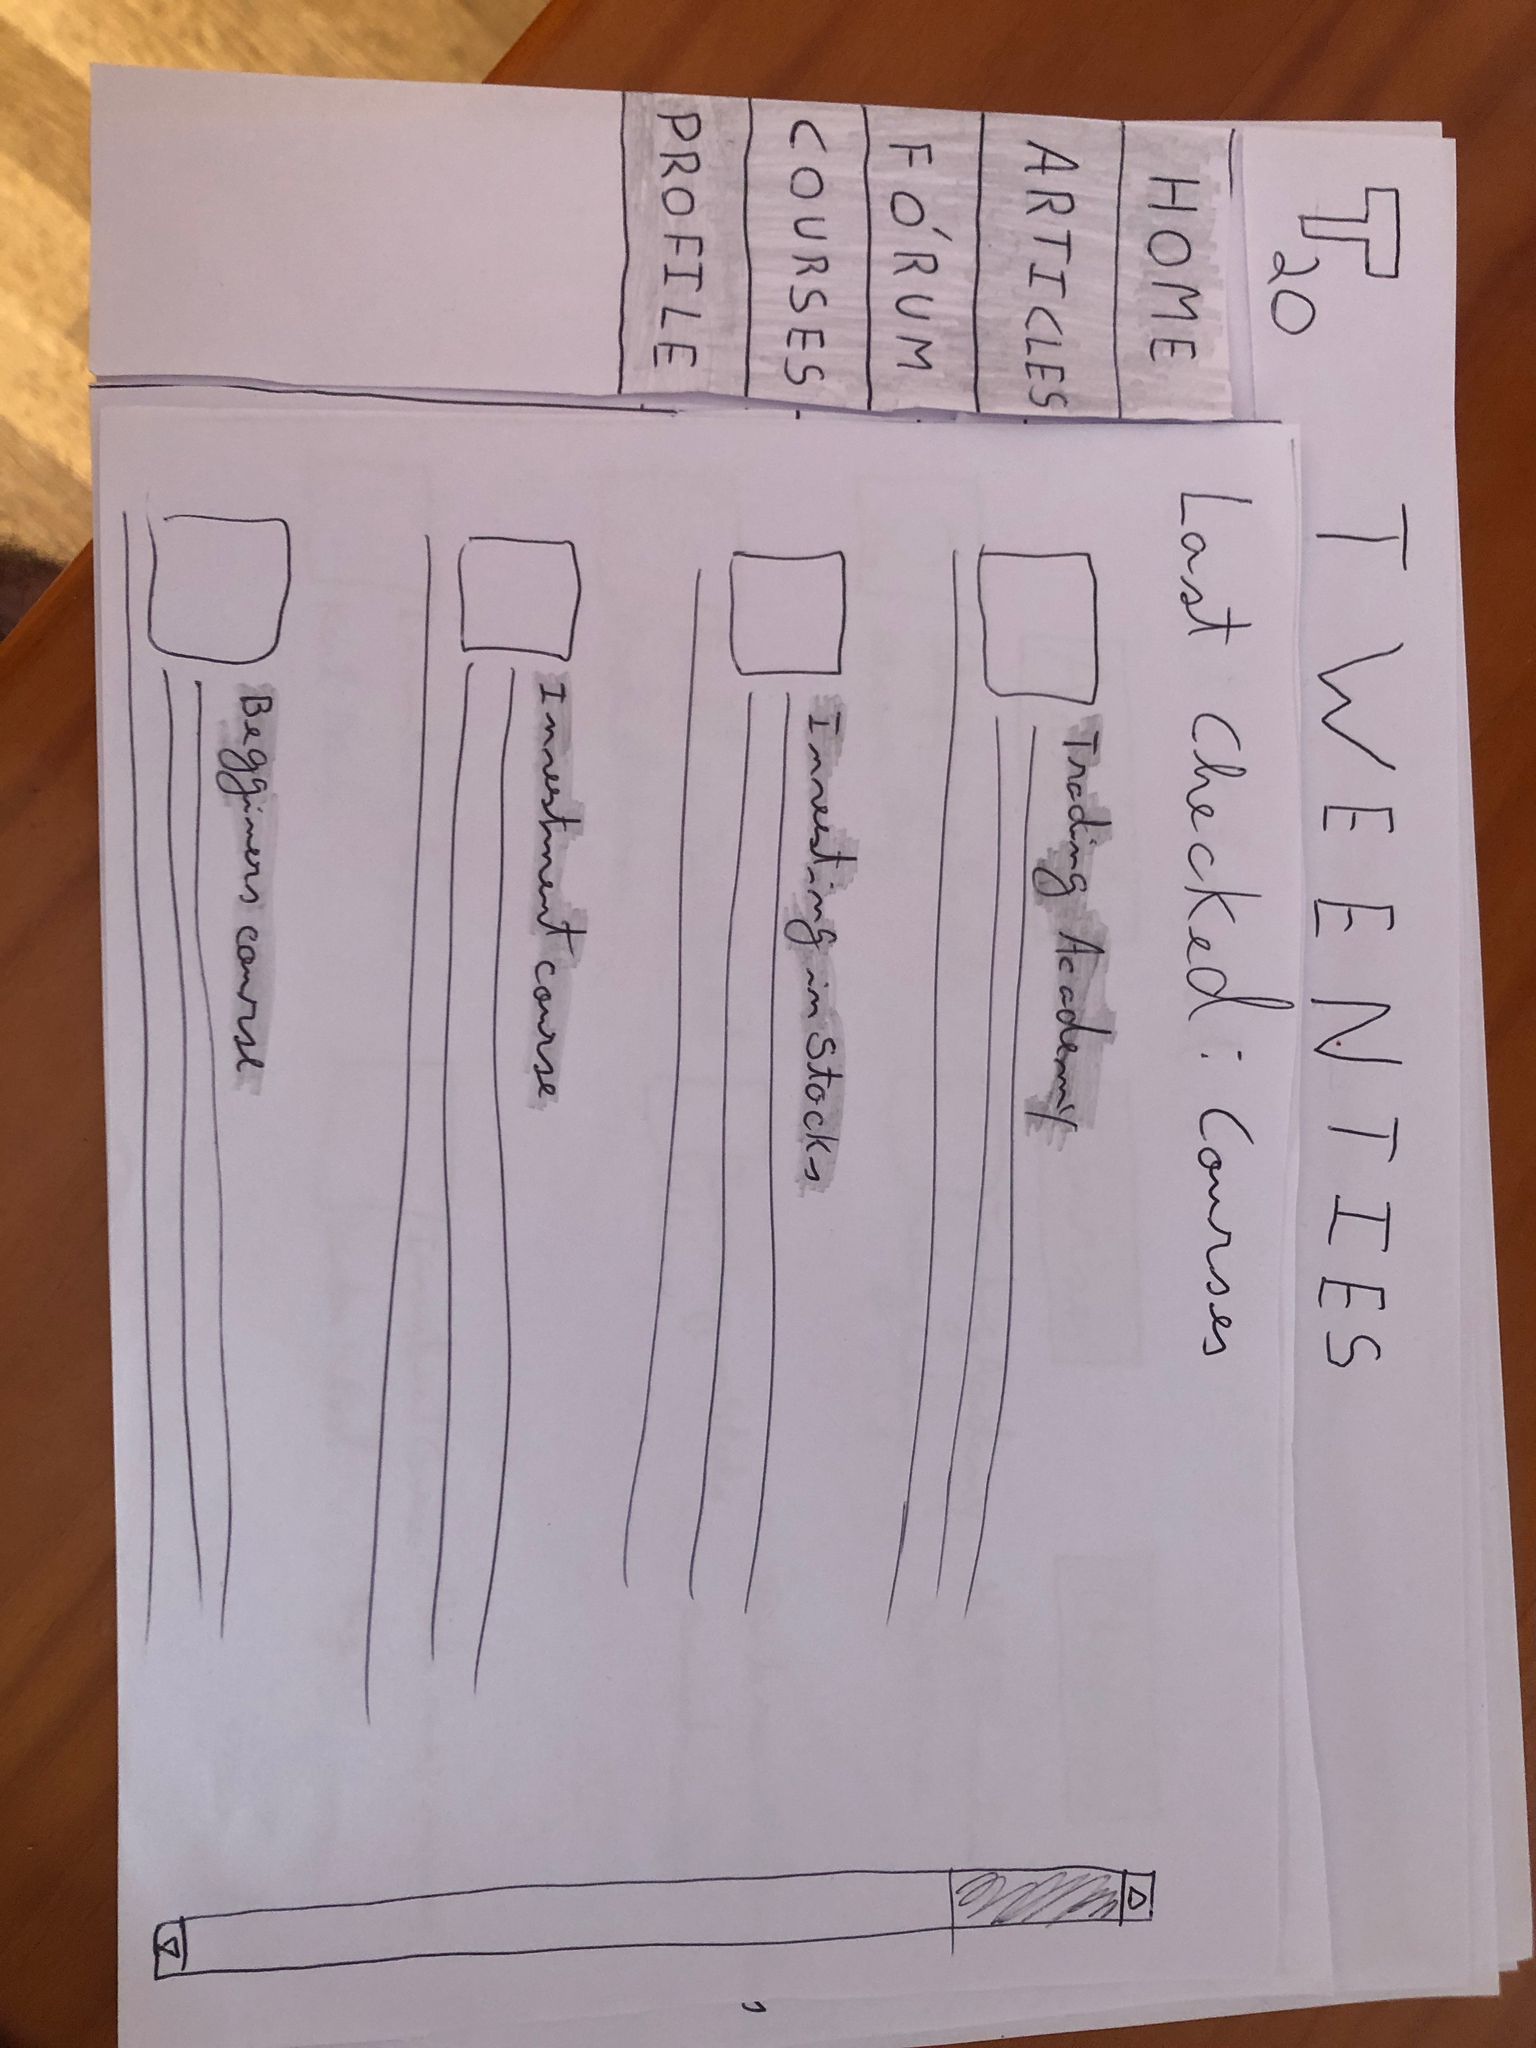 T
20
TWENTIES
HOME
ARTICLES
FÓRUM
COURSES
PROFILE
Last Checked: Courses
Trading Academy
Investing in Stocks
Investment course
Begginers course